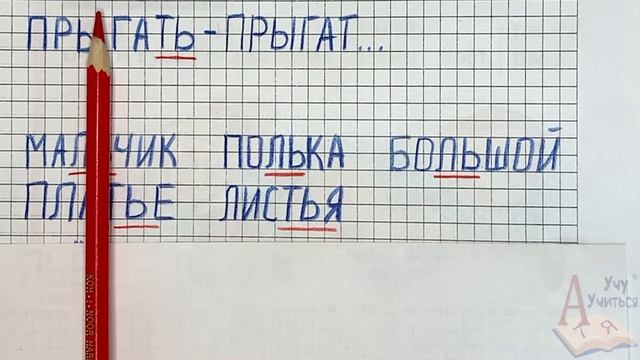 ПРЫГАТЬ-ПРЫГАТ...
МАЛЬЧИК ПОЛЬКА БОЛЬШОЙ
ПЛАТЬЕ ЛИСТЬЯ
KOH-I-NOOR HAR
Учу
Учиться
А Я